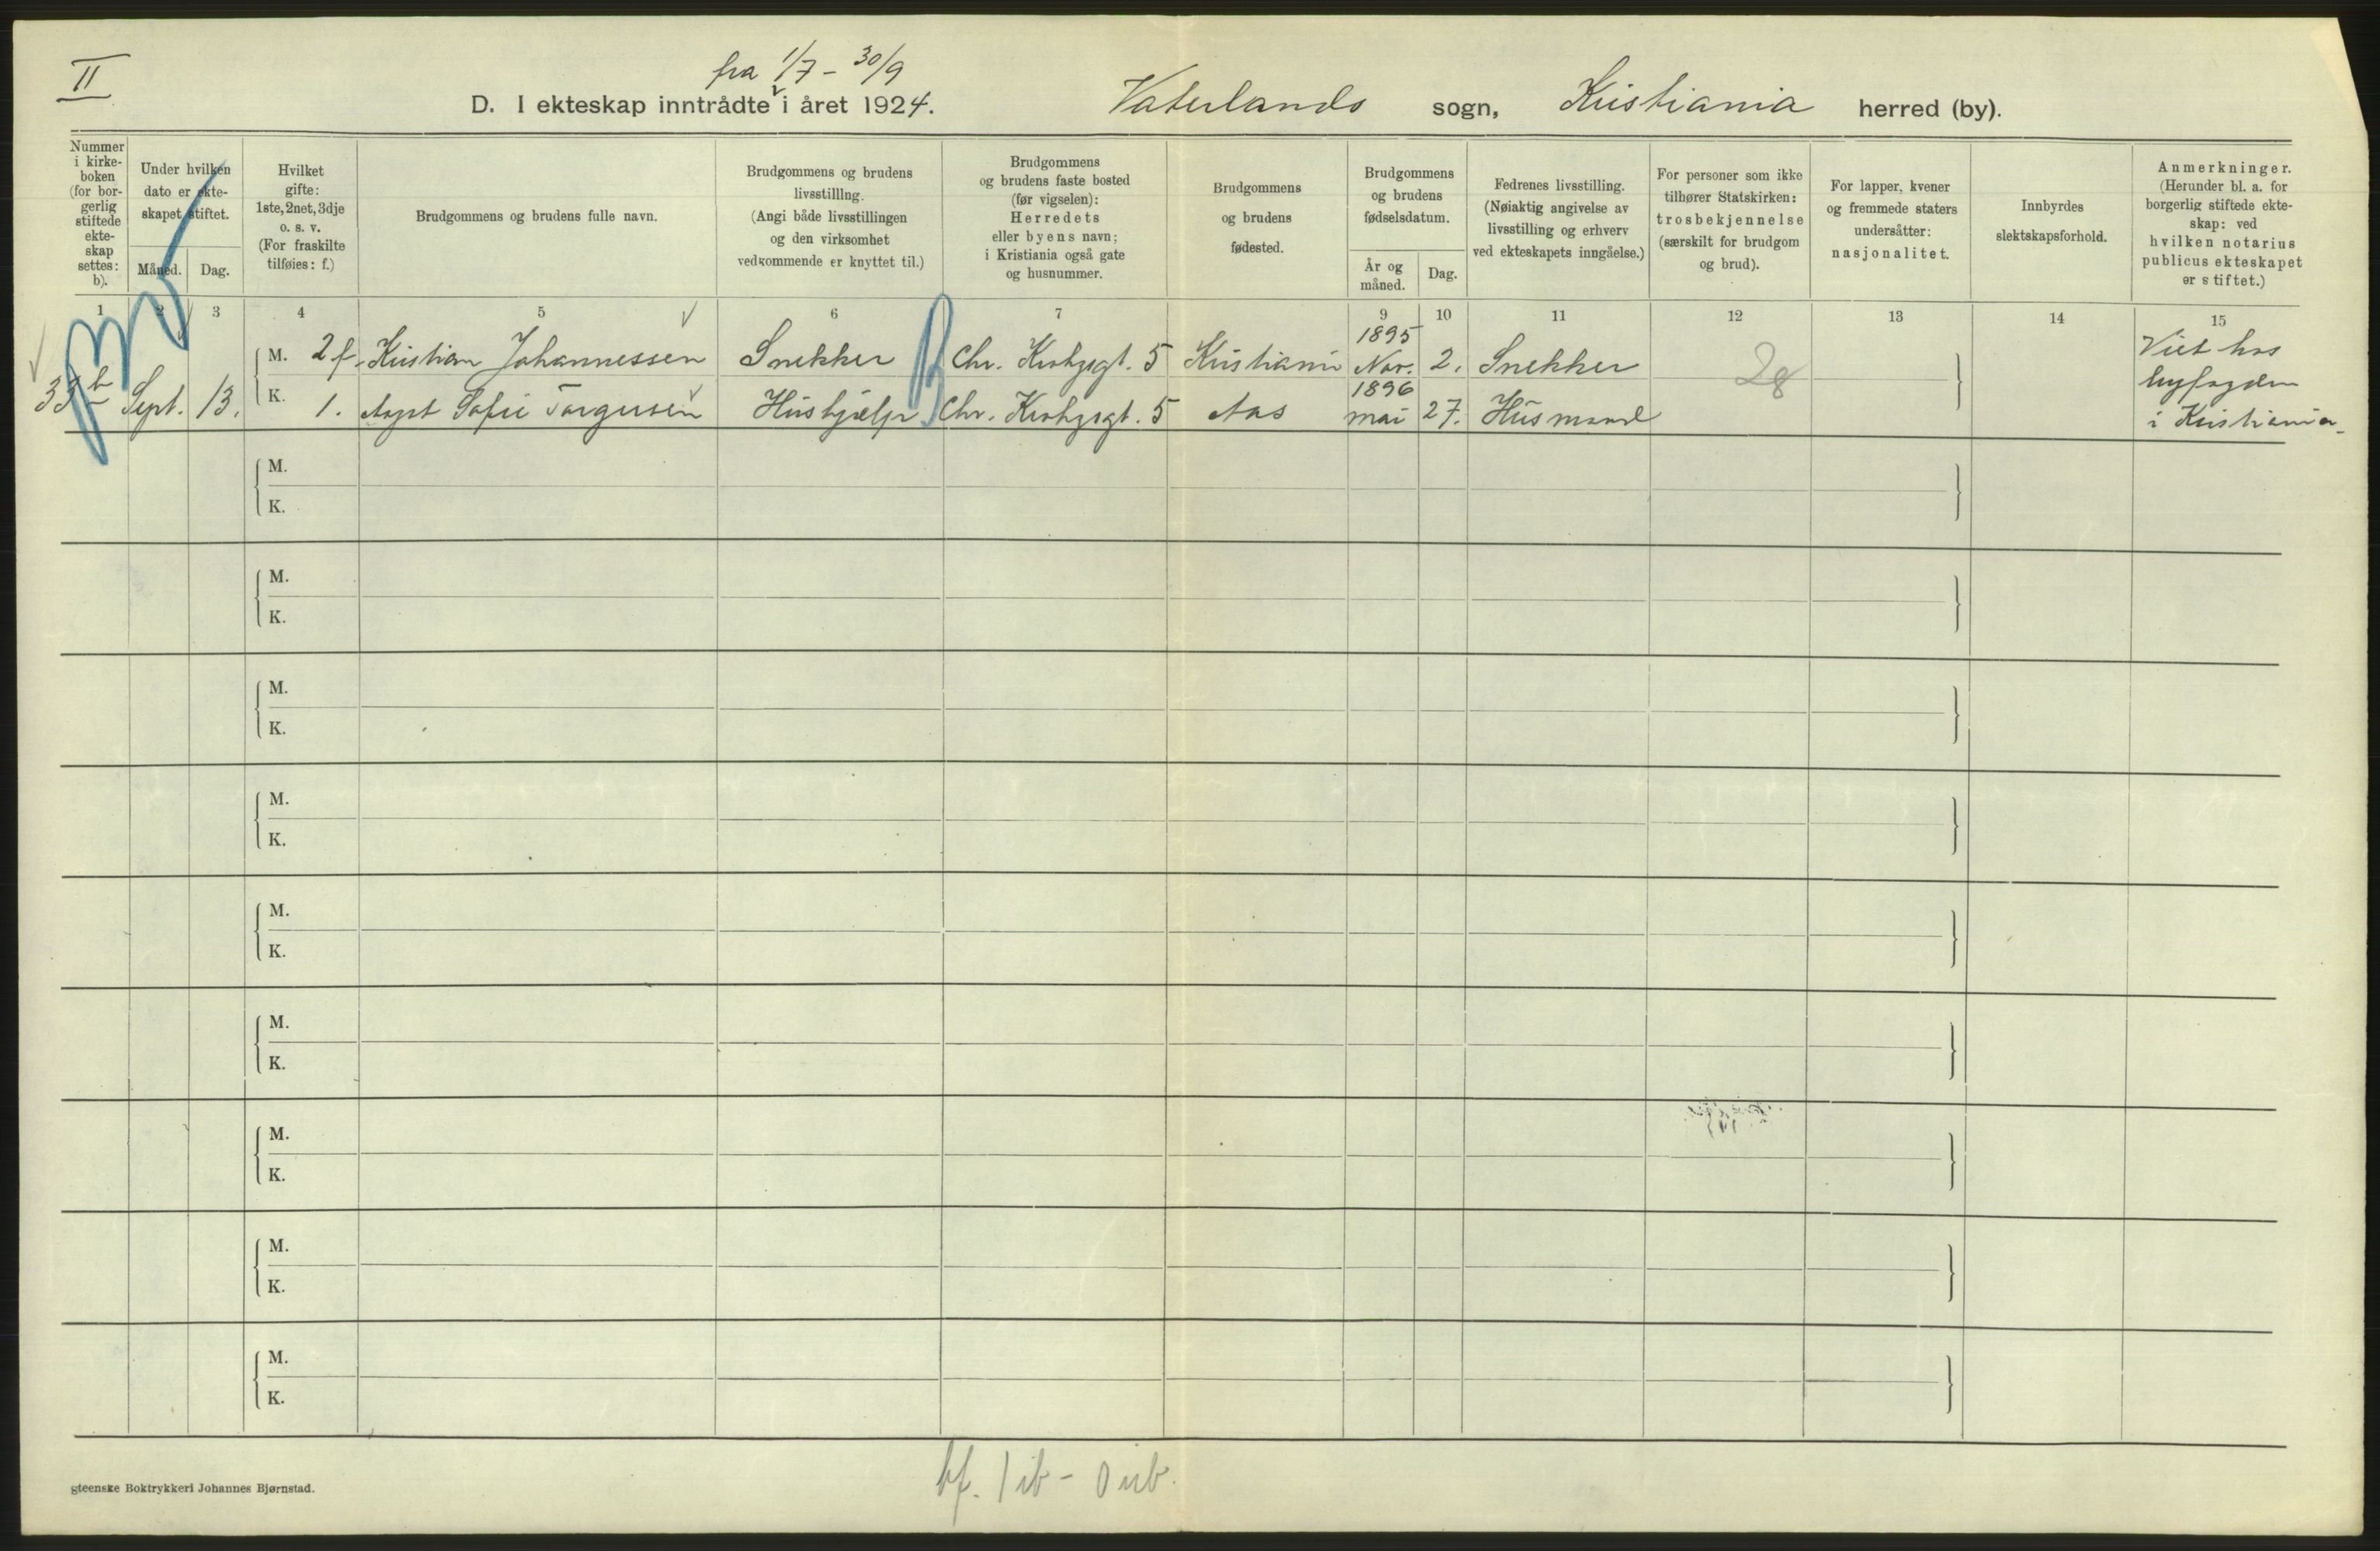 II
fra 1/7 - 30/9
D. I ekteskap inntrådte i året 1924. Vaterlands sogn, Kristiania herred (by).
Nummer
i kirke-
boken
(for bor-
gerlig
stiftede
ekte-
skap
settes:
b).
Under hvilken
dato er ekte-
skapet stiftet.
Måned. Dag.
Hvilket
gifte:
1ste, 2net, 3dje
o. s. v.
(For fraskilte
tilføies: f.)
Brudgommens og brudens fulle navn.
Brudgommens og brudens
livsstilllng.
(Angi både livsstillingen
og den virksomhet
vedkommende er knyttet til.)
Brudgommens
og brudens faste bosted
(før vigselen):
Herredets
eller byens navn;
i Kristiania også gate
og husnummer.
Brudgommens
og brudens
fødested.
Brudgommens
og brudens
fødselsdatum.
År og
måned.
Dag.
Fedrenes livsstilling.
(Nøiaktig angivelse av
livsstilling og erhverv
ved ekteskapets inngåelse.)
For personer som ikke
tilhører Statskirken:
trosbekjennelse
(særskilt for brudgom
og brud).
For lapper, kvener
og fremmede staters
undersåtter:
nasjonalitet.
Innbyrdes
slektskapsforhold.
Anmerkninger.
(Herunder bl. a. for
borgerlig stiftede ekte-
skap: ved
hvilken notarius
publicus ekteskapet
er stiftet.)
1 2 3 4 5 6 7 8 9 10 11 12 13 14 15
M. 2 f. Kristian Johannessen Snekker Chr. Krohgsgt. 5 Kristiania 1895 Nov. 2. Snekker
33 b Sept. 13. K. 1. Aagot Sofie Torgersen Hushjælp Chr. Krohgsgt. 5 Aas 1896 mai 27. Husmand
28
Viet hos
byfogden
i Kristiania
M.
K.
M.
K.
M.
K.
M.
K.
M.
K.
M.
K.
M.
K.
M.
K.
M.
K.
bf. 1 ib - 0 ub.
gteenske Boktrykkeri Johannes Bjørnstad.